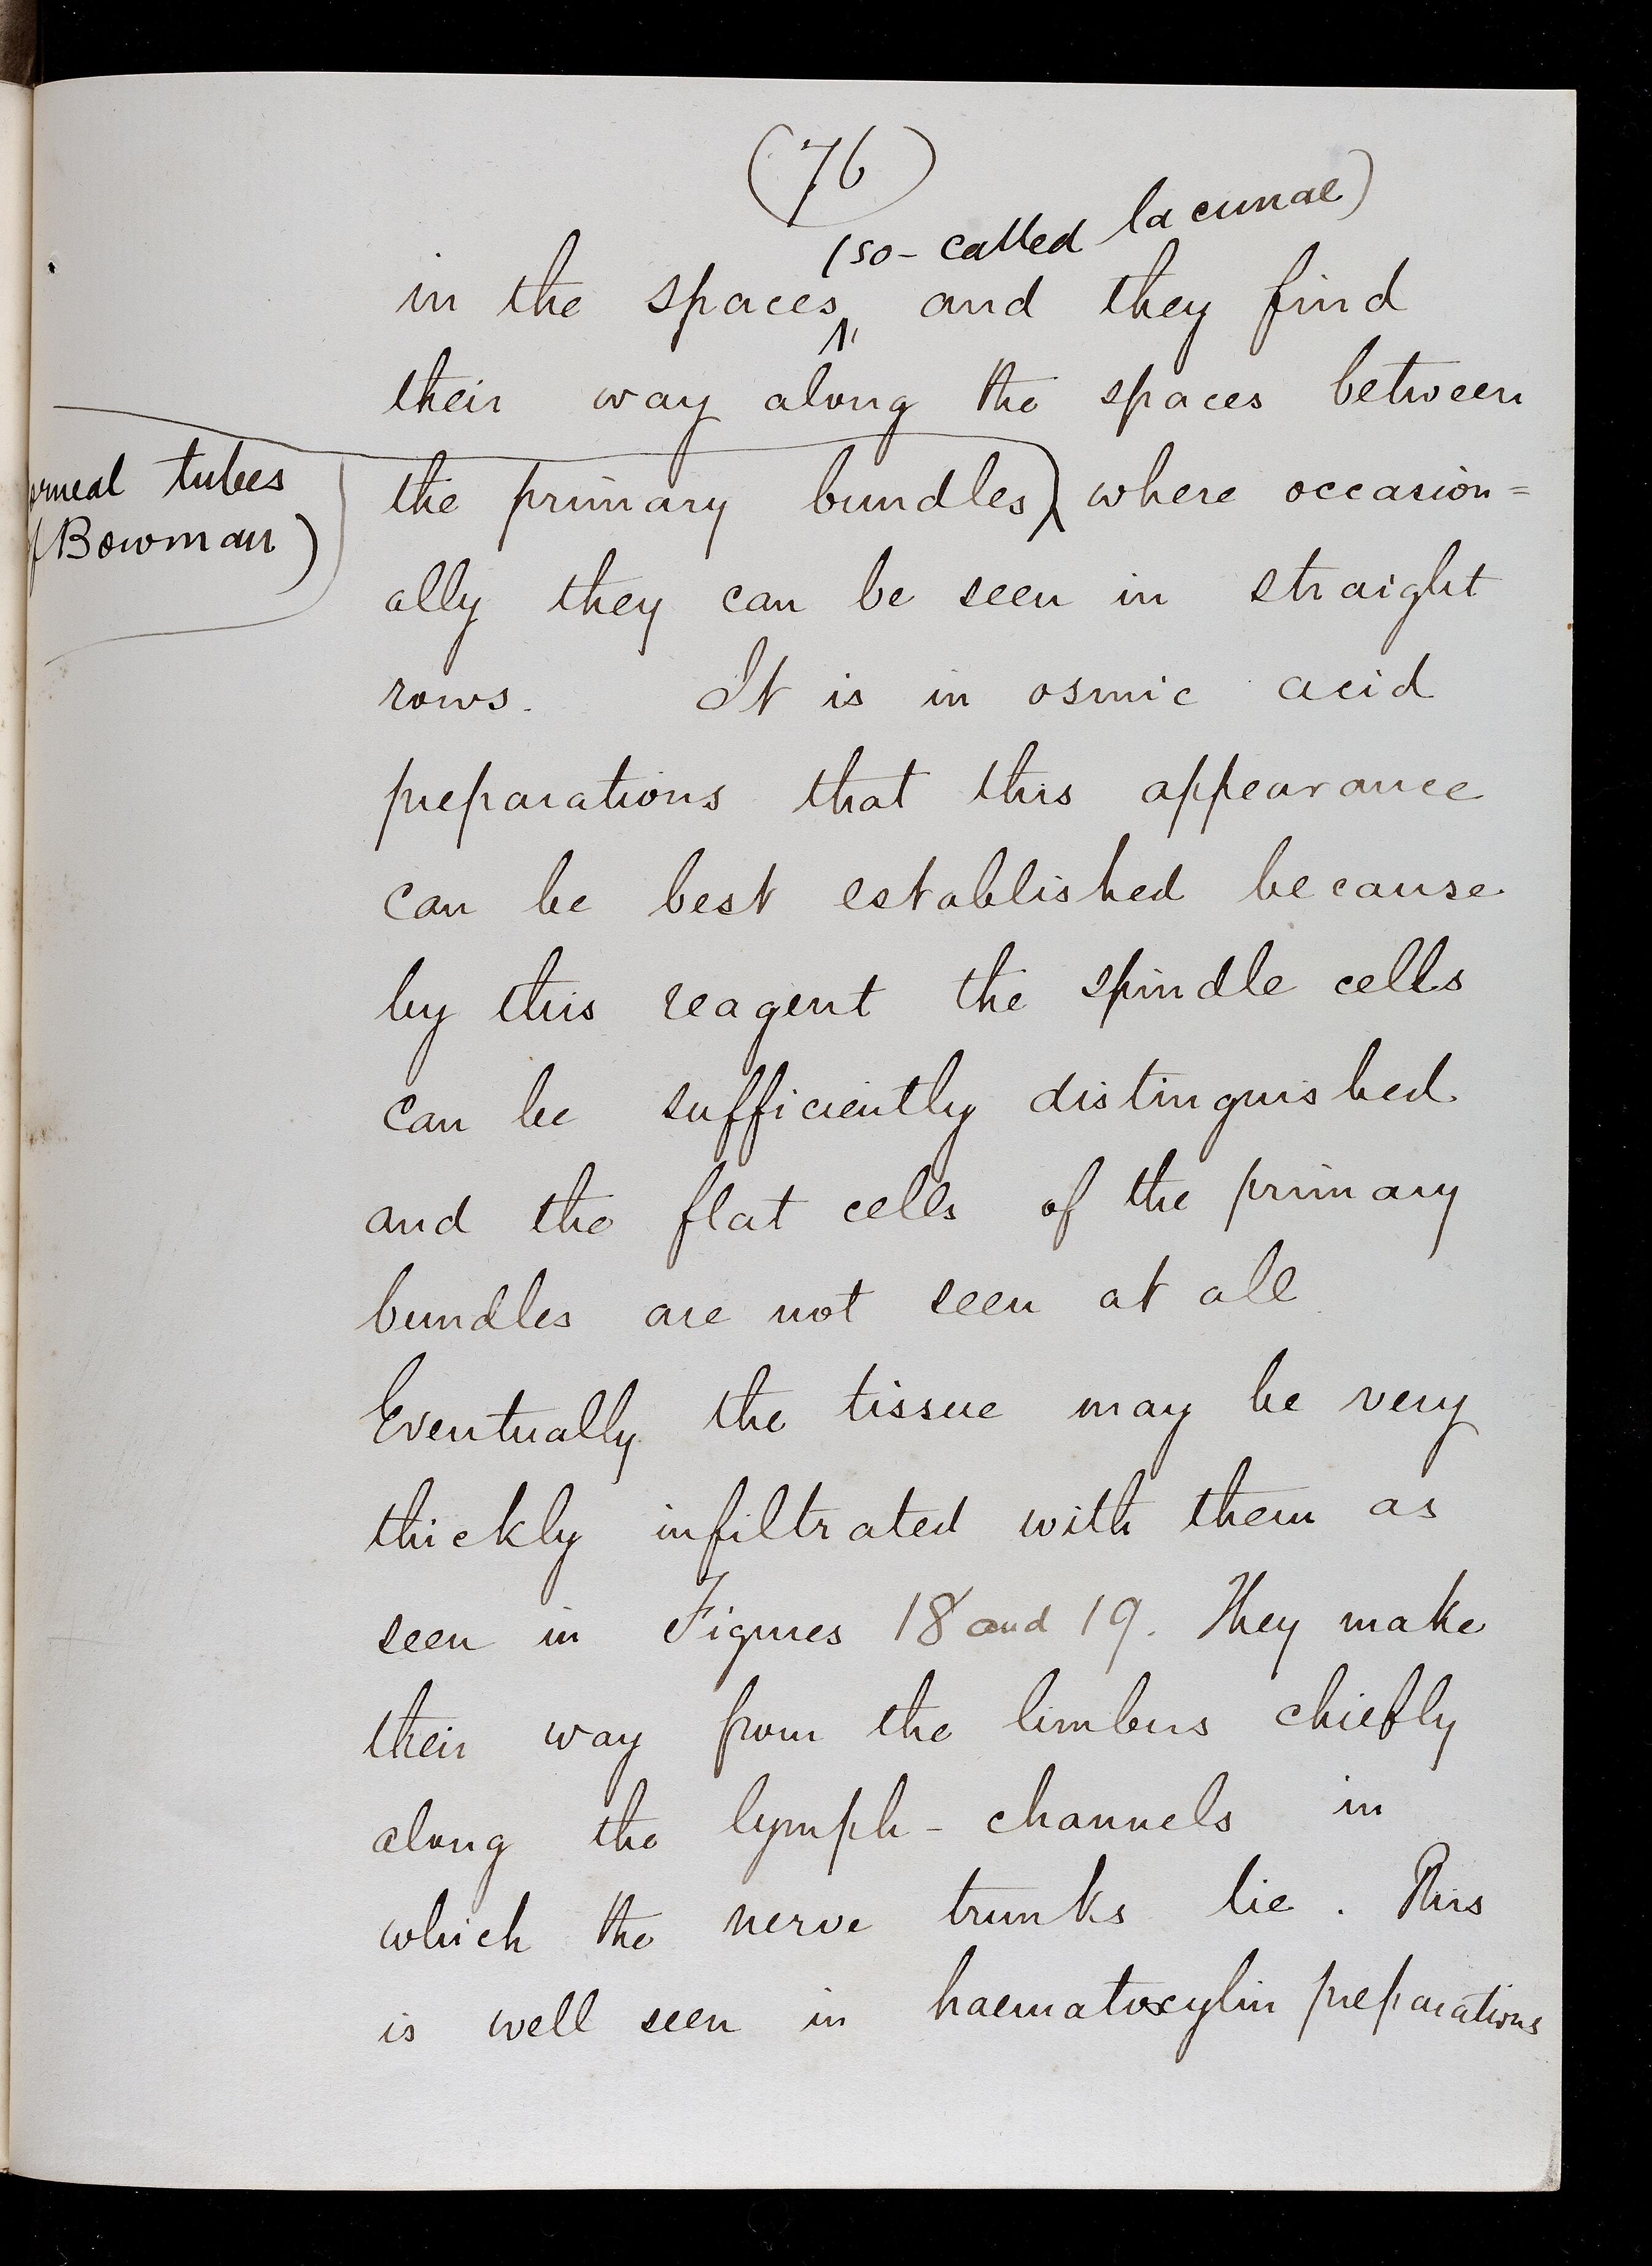 (76)
(so-called lacunae)
in the spaces, and they find
their way along the spaces between
the primary bundles) where occasion=
orneal tubes
f Bowman)
ally they can be seen in straight
rows. It is in osmic acid
preparations that this appearance
can be best established because
by this reagent the spindle cells
can be sufficiently distinguished
and the flat cells of the primary
bundles are not seen at all
Eventually the tissue may be very
thickly infiltrated with them as
seen in Figures 18 and 19. They make
their way from the limbus chiefly
along the lymph-channels in
which the nerve trunks lie. This
is well seen in haematoxylin preparations